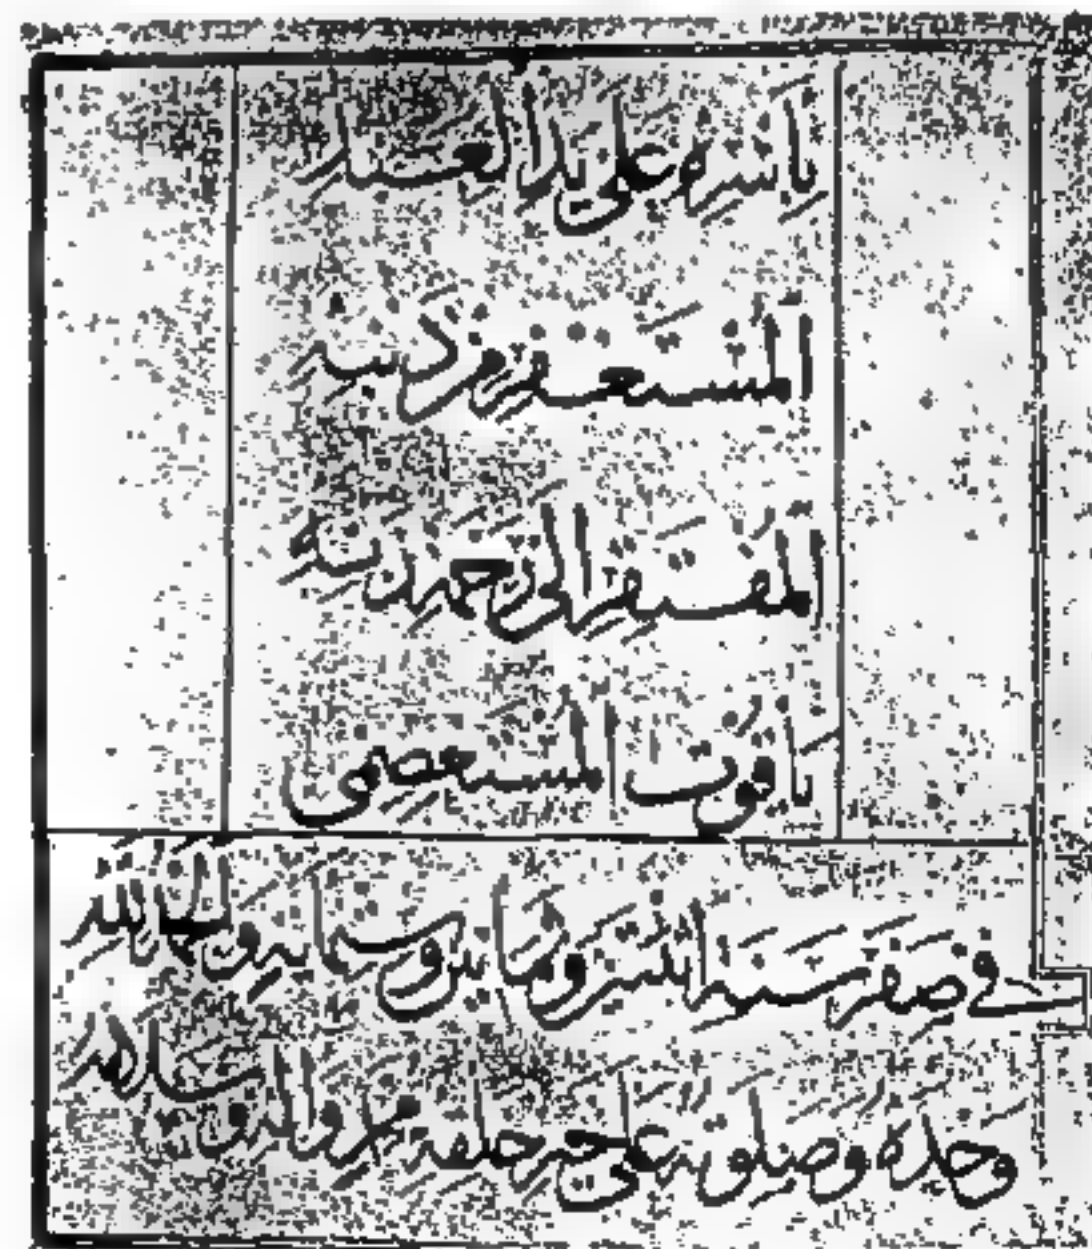 باسره على يد العبد
المستغفر من ذنبه
المفتقر الى رحمة ربه
ياقوت المستعصمي
في صفر سنة اثنتين وثمانين وستمائة ولله
وحده وصلوته على خير خلقه محمد واله وسلامه